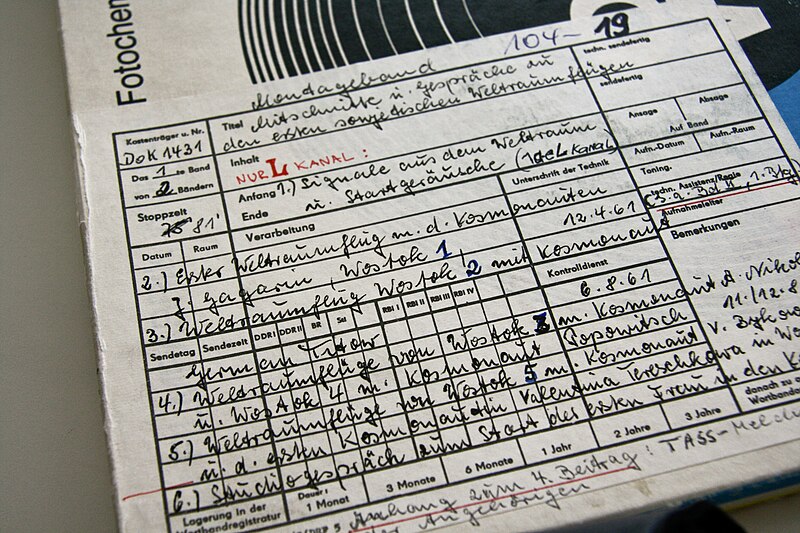 Fotochem
104-19
Montageband
techn. sendefertig
Titel Mitschnitte u. Gespräche zu
sendefertig
den ersten sowjetischen Weltraumflügen
Kostenträger u. Nr.
DOK 1431
Inhalt NUR L KANAL:
Ansage Absage
Auf Band
Das 1 te Band
von 2 Bändern
Anfang 1.) Signale aus dem Weltraum
Ende u. Startgeräusche (nur L Kanal)
Aufn.-Datum Aufn.-Raum
Stoppzeit
81'
Verarbeitung
Unterschrift der Technik
Toning.
techn. Assistenz/Regie
Aufnahmeleiter
Datum Raum
2.) Erster Weltraumflug m. d. Kosmonauten
J. Gagarin, Wostok 1, 12.4.61
Bemerkungen
3.) Weltraumflug Wostok 2 mit Kosmonaut
Kontrolldienst
Sendetag Sendezeit DDR I DDR II BR RBI I RBI II RBI III RBI IV
German Titow 6.8.61
4.) Weltraumflüge von Wostok 3 m. Kosmonaut A. Nikol
u. Wostok 4 m. Kosmonaut Popowitsch 11./12.8
5.) Weltraumflüge von Wostok 5 m. Kosmonaut V. Bykow
u. d. ersten Kosmonautin Valentina Tereschkowa in Wo
6.) Studiogespräch zum Start der ersten Frau in den K
danach zu d
Wortbandar
Lagerung in der
Wortbandregistratur
Dauer: 1 Monat 3 Monate 6 Monate 1 Jahr 2 Jahre 3 Jahre
Anhang zum 4. Beitrag: TASS-Meldu
der Angehörigen